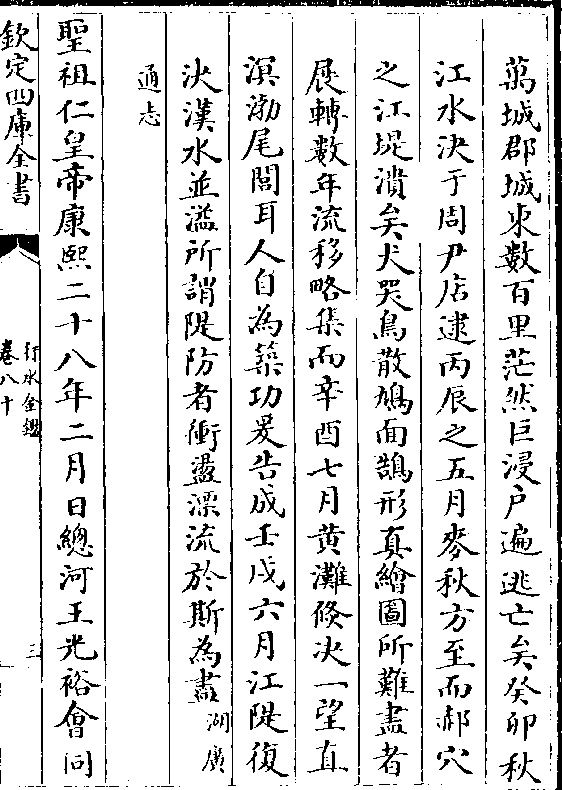 萬城郡城東數百里茫然巨浸户遍逃亡矣癸卯秋
江水決于周尹店逮丙辰之五月麥秋方至而郝穴
之江堤潰矣犬哭鳥散鳩面鵠形真繪圖所難盡者
展轉數年流移略集而辛酉七月黄灘倐决一望直
溟渤尾閭耳人自為築功爰告成壬戌六月江隄復
決漢水並溢所謂隄防者衝盪漂流於斯為盡湖廣
通志
聖祖仁皇帝康熙二十八年二月日總河王光裕會同
欽定四庫全書
行水金鑑
卷八十
三